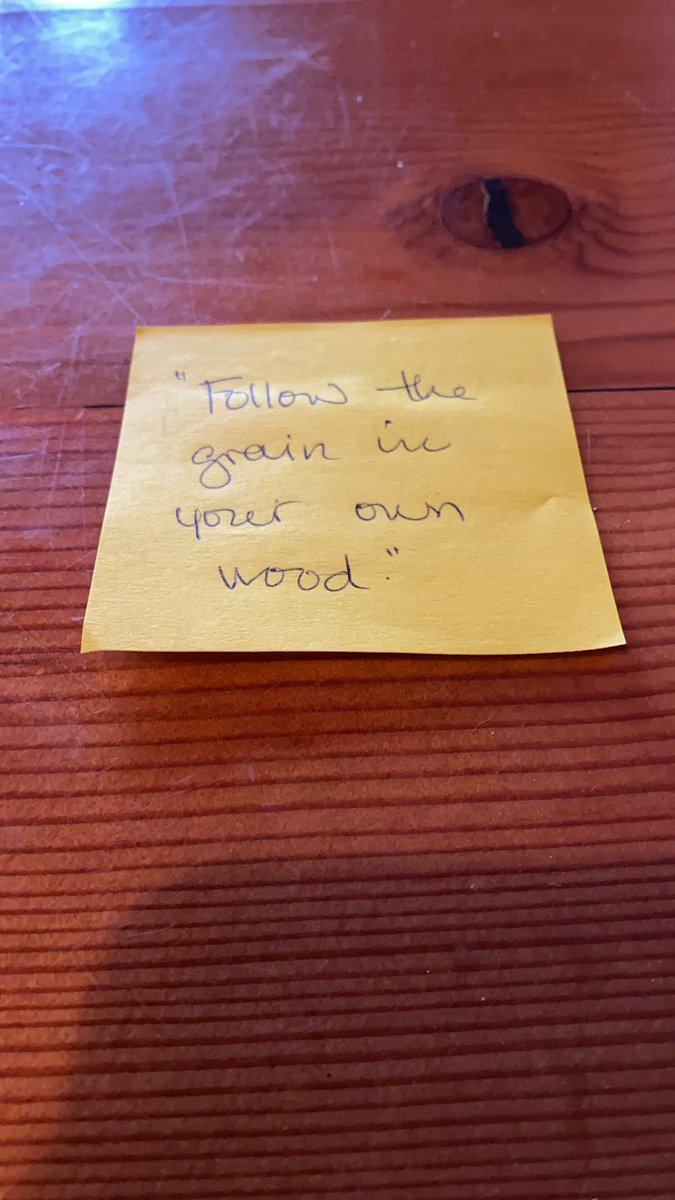 "Follow the
grain in
your own
wood."